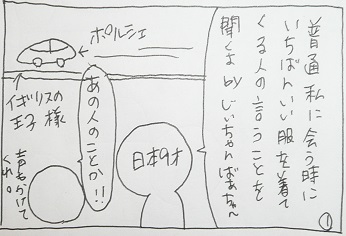 普通私に会う時に
いちばんいい服を着て
くる人の言うことを
聞くよ byじいちゃんばあちゃん
①
ポルシェ
イギリスの
王子様
あの人のことか!!
日本9才
声をかけて
くれ。